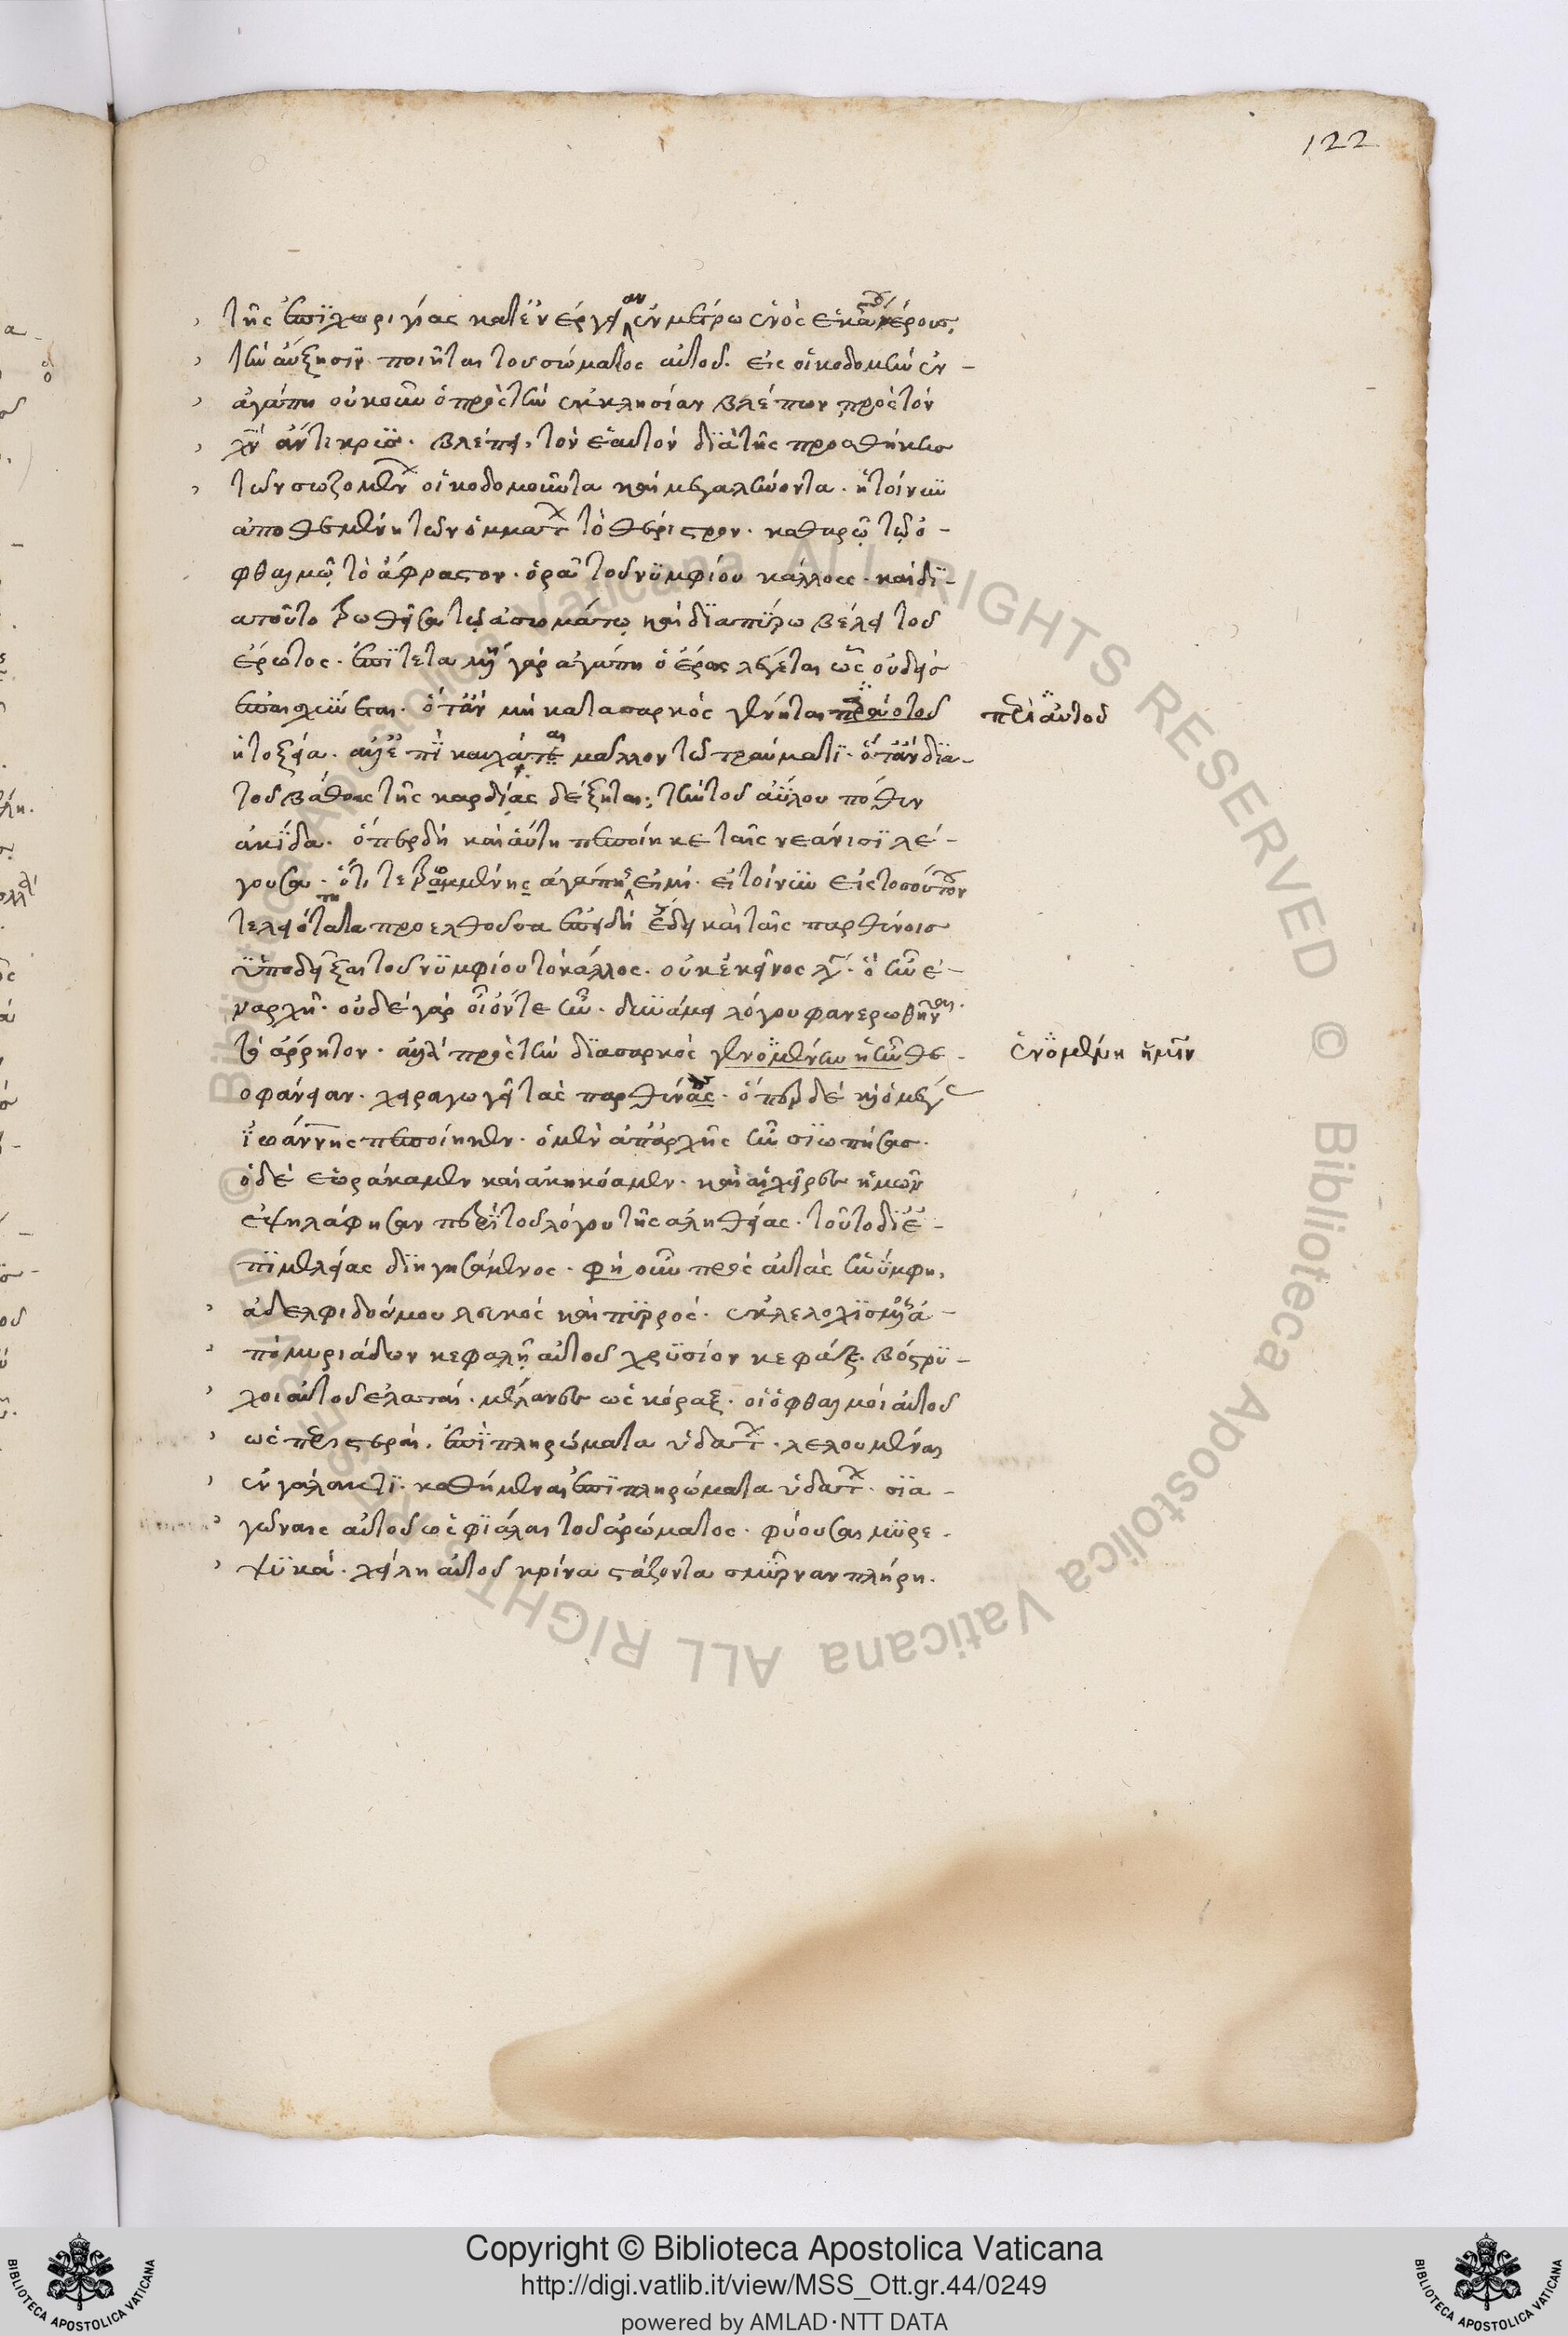 122
τῆς ἐπϊχωριγίας κατἐν έργειαν ἐν μέτρω ἑνὸς ἑκάστου μέρους,
τὴν ἀύξησιν ποιῆται του σώματος αὐτοῦ. εις οἰκοδομὴν ἐν -
ἀγάπη οὐκοῦν ὁ πρὸς τὴν ἐκκλησίαν βλέπων πρὸς τὸν
χν ἀντικρϋσ. βλέπει, τὸν ἑαυτὸν δϊὰ τῆς προσθήκησ
τῶν σωζομένων οἰκοδομοῦντα καὶ μεγαλύνοντα. ἡ τοίνυν
ἀποθεμένη τῶν ὀμμάτων τὸ θέριστρον. καθαρῷ τῷ ὀ -
φθαλμῷ τὸ ἄφραστον. ὁρᾶ τοῦ νϋμφίου κάλλος. καὶ δϊ -
ατοῦτο τρωθεῖσα τῷ ἀσωμάτῳ καὶ δϊαπύρω βέλει τοῦ
ἔρωτος. ἐπϊτεταμένη γάρ ἀγάπη ὁ ἔρως λέγεται ὧ οὐδεὶσ
ἐπαισχύνεται. ὅτἂν μὴ κατασαρκὸς γένηται παρ αὐτοῦ
περὶ αὐτοῦ
ἡ τοξεία. ἀλλἐπϊ καυχᾶται μαλλον τῶ τραύματϊ. ὅτἂν δϊα -
τοῦ βάθους τῆς καρδίας δέξηται, τὴν τοῦ ἀΰλου πόθου
ἀκίδα. ὅπερ δὴ καὶ ἁύτη πεποίηκε ταῖς νεάνισϊ λέ -
γουσα. ὅτι τετρωμένης ἀγάπης εἰμί. εἰ τοίνυν εἰς τοσοῦτον
τελειότητα προελθοῦσα ἐπειδὴ ἔδει καὶ ταῖς παρθένοισ
ϋποδεῖξαι τοῦ νϋμφίου τὸ κάλλος. οὐκ ἐκεῖνος λέγει. ὃ ἦν ἐ -
ναρχῆ. οὐδὲ γάρ οἷόν τε ἦν. δυνάμει λόγου φανερωθῆναι
τὸ ἄρρητον. ἀλλὰ πρὸς τὴν δϊασαρκὸς γενομένην ἡμῖν θε -
ἐνομένη ἡμῖν
οφάνειαν. χειραγωγεῖ τὰς παρθένας. ὅπερ δὲ καὶ ὁ μέγας
ϊωάννης πεποίηκεν. ὁ μὲν ἀπἀρχῆς ἦν σϊωπήσασ.
ὃ δὲ ἑωράκαμεν καὶ ἀκηκόαμεν. καὶ αἱ χεῖρες ἡμῶν
ἐψηλάφησαν περὶ τοῦ λόγου τῆς ἀληθείας. τοῦτο δϊἐ -
πϊμελείας δϊηγησάμενος. φη οὖν πρὸς αὐτὰς ἡ νύμφη,
ἀδελφιδοῦ μου λευκὸς καὶ πϋρρός. ἐκλελοχϊσμένος ἀ -
πὸ μυριάδων κεφαλὴ αὐτοῦ χρϋσίον κεφάζ. βόστρϋ -
χοι αὐτοῦ ελαται. μέλανες ὡς κόραξ. οἱ ὀφθαλμοὶ αὐτοῦ
ὡς περιστεραὶ. ἐπϊ πληρώματα ὑδάτων. λελουμέναι
ἐν γάλακτϊ. καθήμεναι ἐπϊ πληρώματα ὑδάτων. σϊα -
γῶναις αὐτοῦ ὡς φϊάλαι τοῦ ἀρώματος. φύουσαι μϋρε -
ψϋκά. χείλη αὐτοῦ κρίνα στάζοντα σμύρναν πλήρη.
Copyright © Biblioteca Apostolica Vaticana
http://digi.vatlib.it/view/MSS_Ott.gr.44/0249
powered by AMLAD·NTT DATA